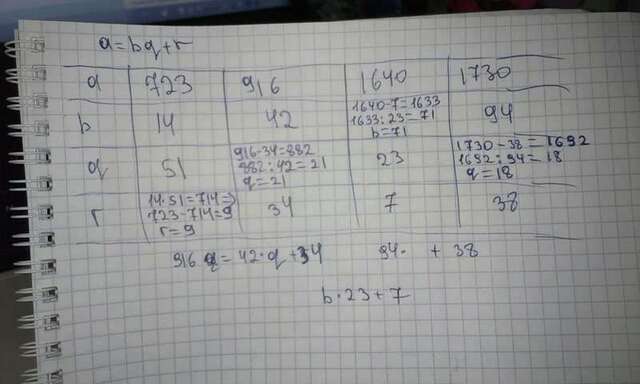 a = bq + r
a 723 916 1640 1730
b 14 42 1640-7=1633 94
1633:23=71
b=71
q 51 916-34=882 23 1730-38=1692
882:42=21 1692:94=18
q=21 q=18
r 14·51=714=> 34 7 38
723-714=9
r=9
916 = 42·q + 34 94· + 38
b·23+7